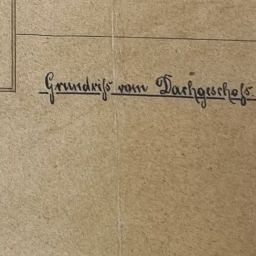 Grundriſs vom Dachgeschoſs.